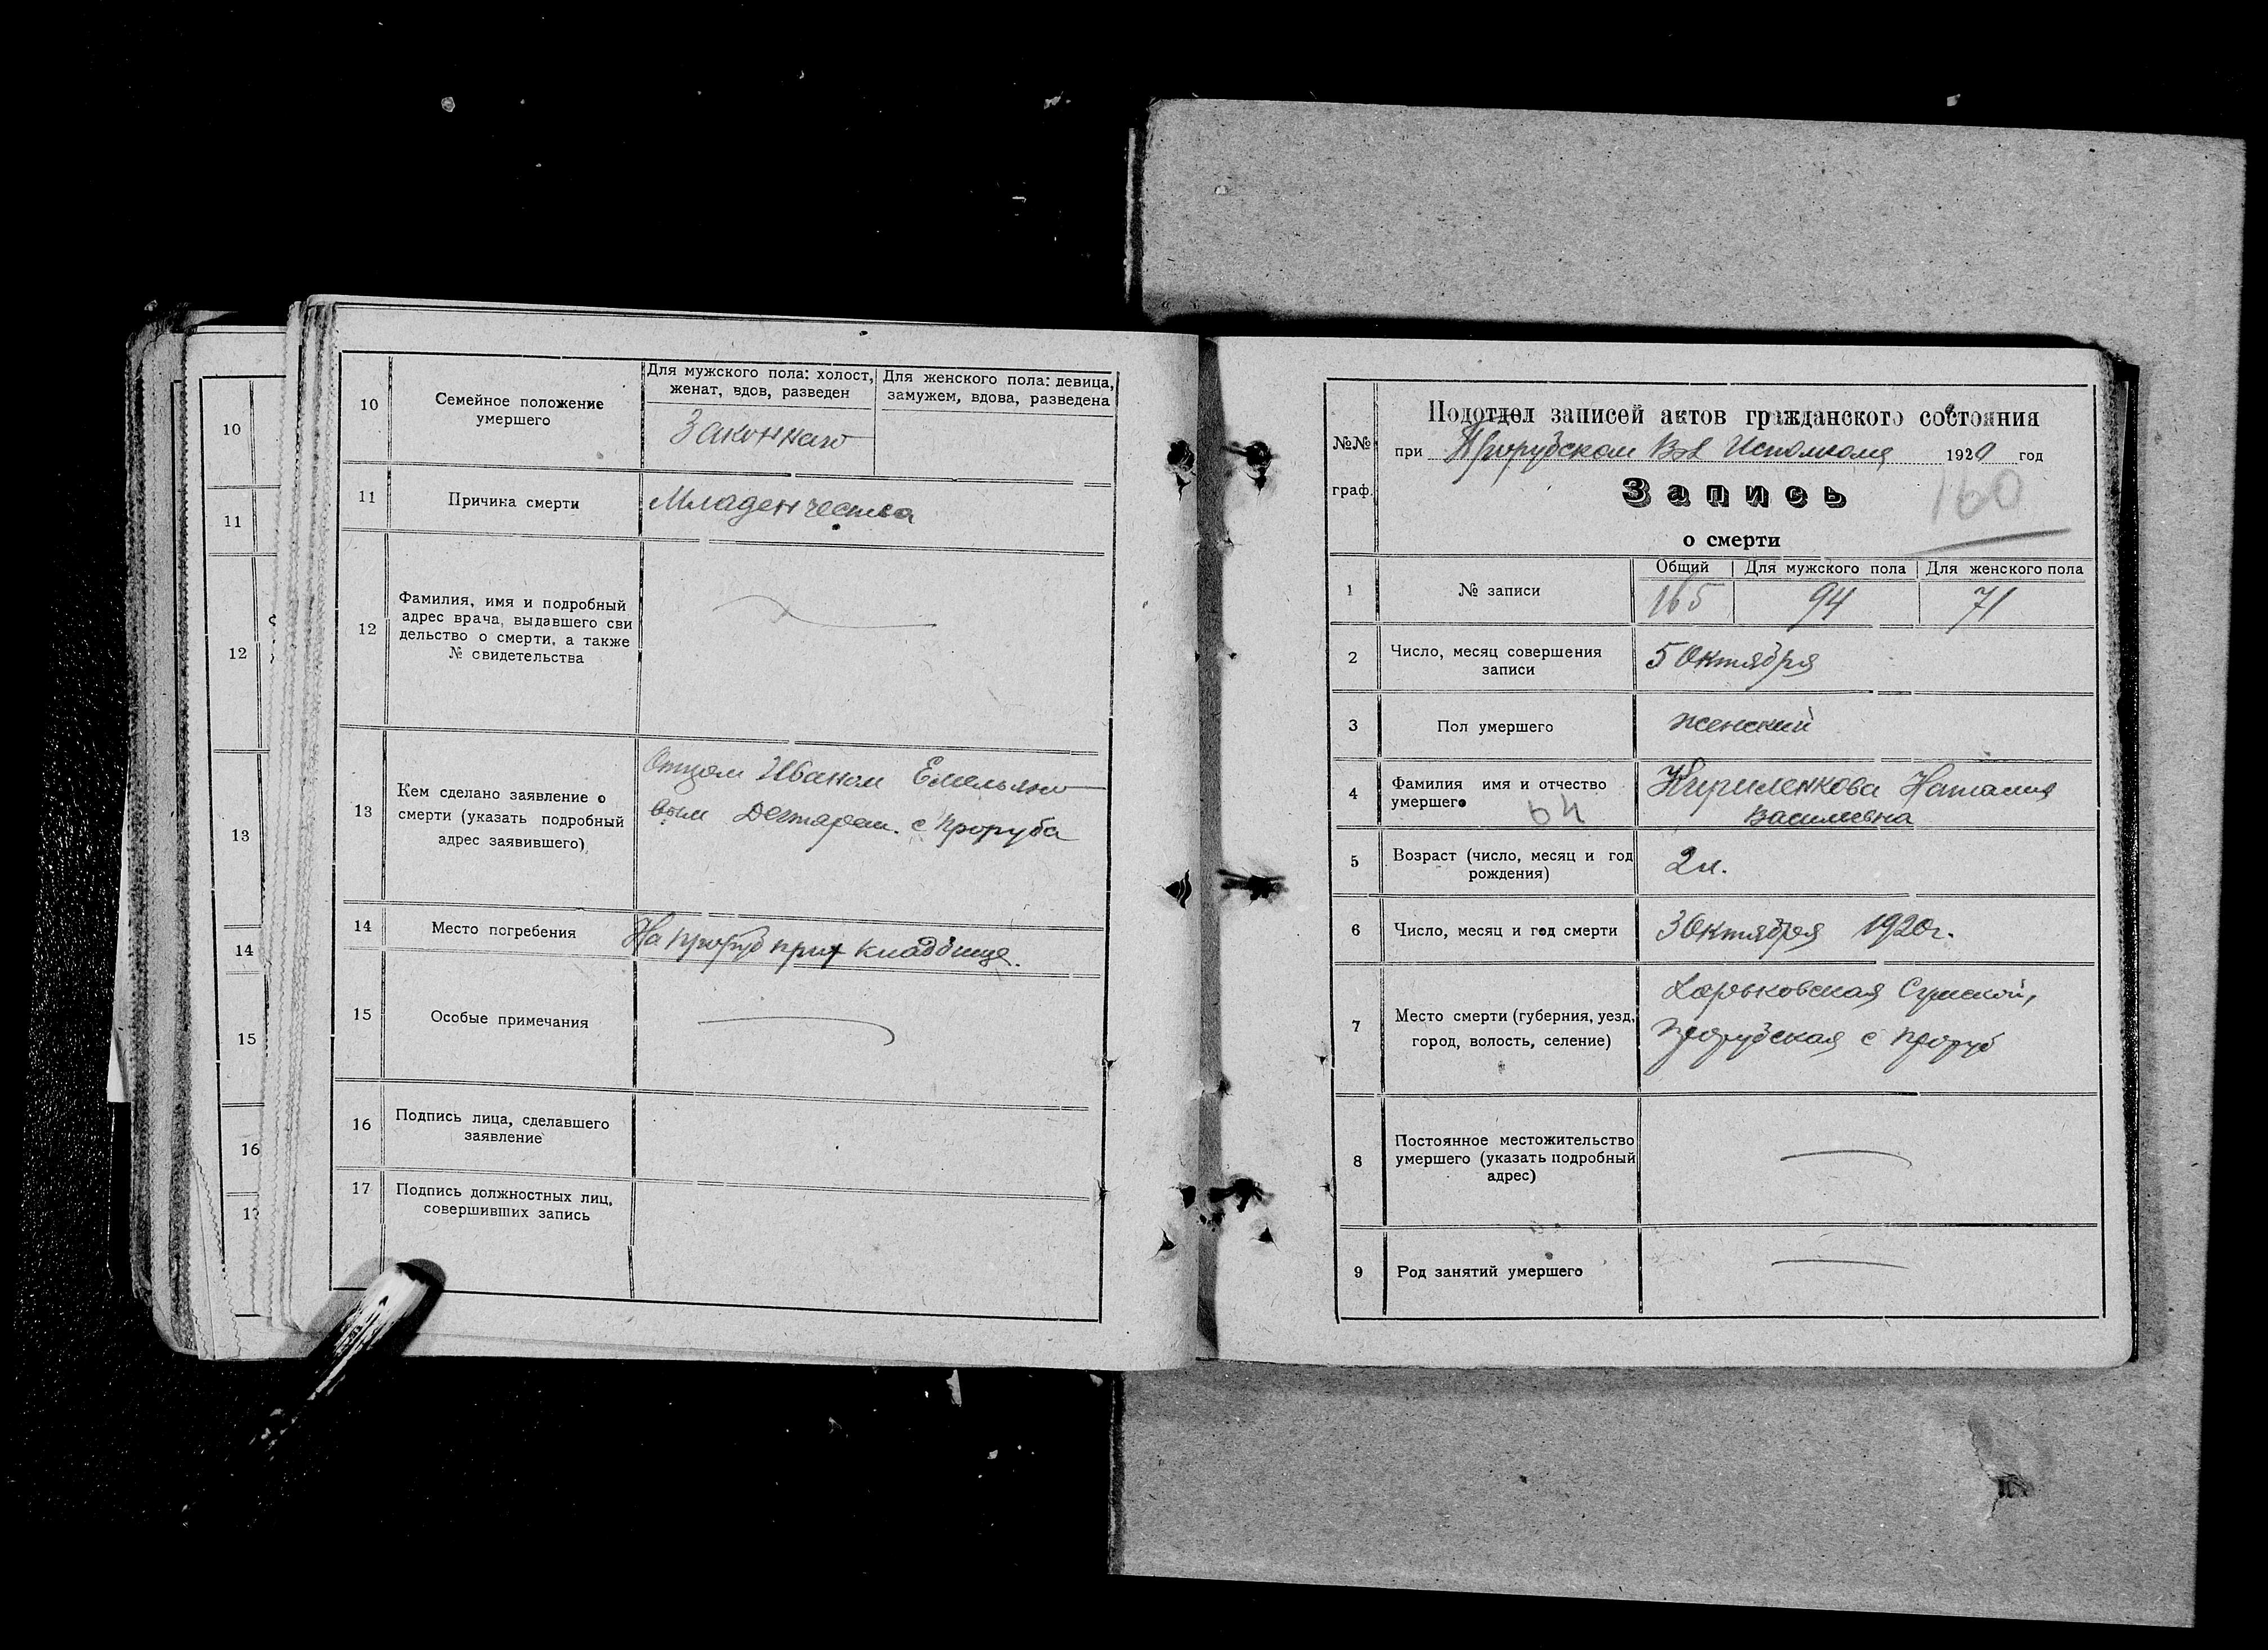 10
11
12
13
14
15
16
10
Семейное положение
умершего
Для мужского пола: холост,
женат, вдов, разведен
Для женского пола: девица,
замужем, вдова, разведена
Законнаго
11
Причина смерти
Младенчества
12
Фамилия, имя и подробный
адрес врача, выдавшего сви
дельство о смерти, а также
№ свидетельства
13
Кем сделано заявление о
смерти (указать подробный
адрес заявившего)
Отцом Иваном Емельяно
вым Дегтярем. с Проруба
14
Место погребения
На Проруб прих кладбище.
15
Особые примечания
16
Подпись лица, сделавшего
заявление
17
Подпись должностных лиц,
совершивших запись
№№
граф.
Подотдел записей актов гражданского состояния
при Прорубском Вол Исполкома 1920 год
Запись
160
о смерти
1
№ записи
Общий
Для мужского пола
Для женского пола
165
94
71
2
Число, месяц совершения
записи
5 Октября
3
Пол умершего
женский
4
Фамилия имя и отчество
умершего
64
Кириленкова Наталия
Васильевна
5
Возраст (число, месяц и год
рождения)
6
Число, месяц и год смерти
3 Октября 1920г.
7
Место смерти (губерния, уезд,
город, волость, селение)
Харьковская Сумской,
Прорубская с Проруб
8
Постоянное местожительство
умершего (указать подробный
адрес)
9
Род занятий умершего